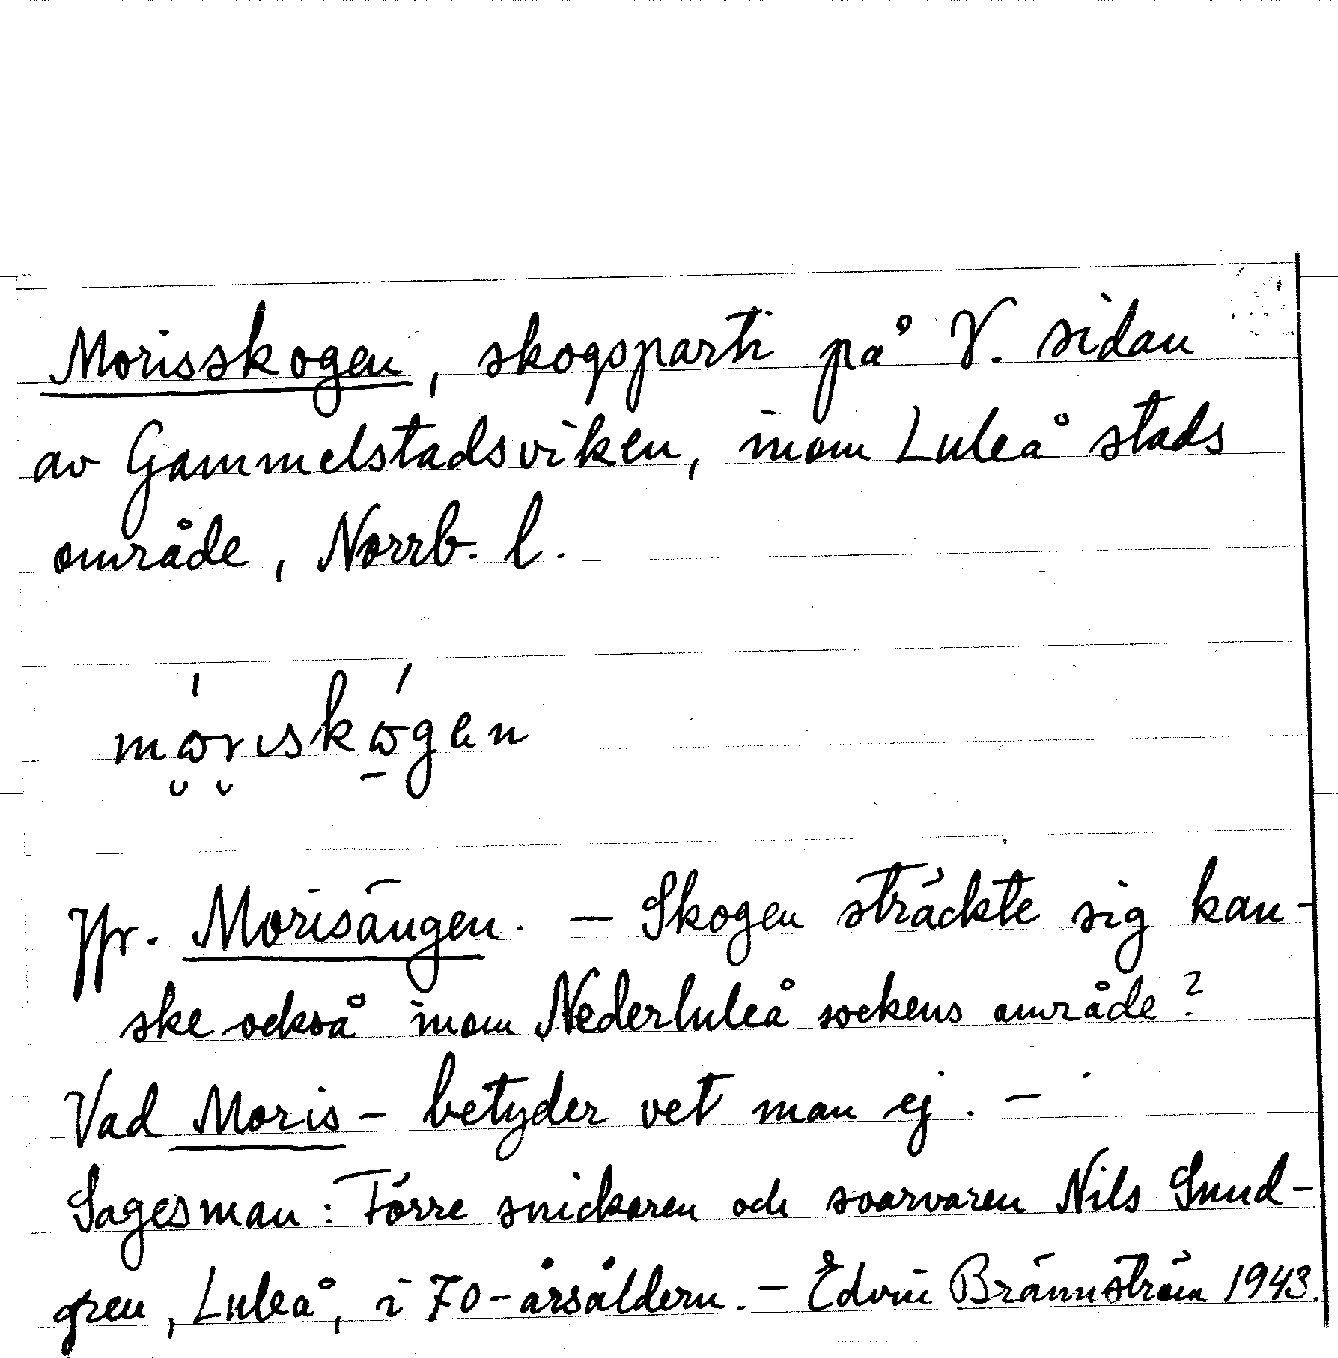 Morisskogen, skogsparti på V. sidan
av Gammelstadsviken, inom Luleå stads
område, Norrb. l.
mɷ́rıskɷ̄́gen
Jfr. Morisängen. — Skogen sträckte sig kan-
ske också inom Nederluleå sockens område?
Vad Moris- betyder vet man ej. —
Sagesman: Förre snickaren och svarvaren Nils Sund-
gren, Luleå, i 70-årsåldern. — Edvin Brännström 1943.